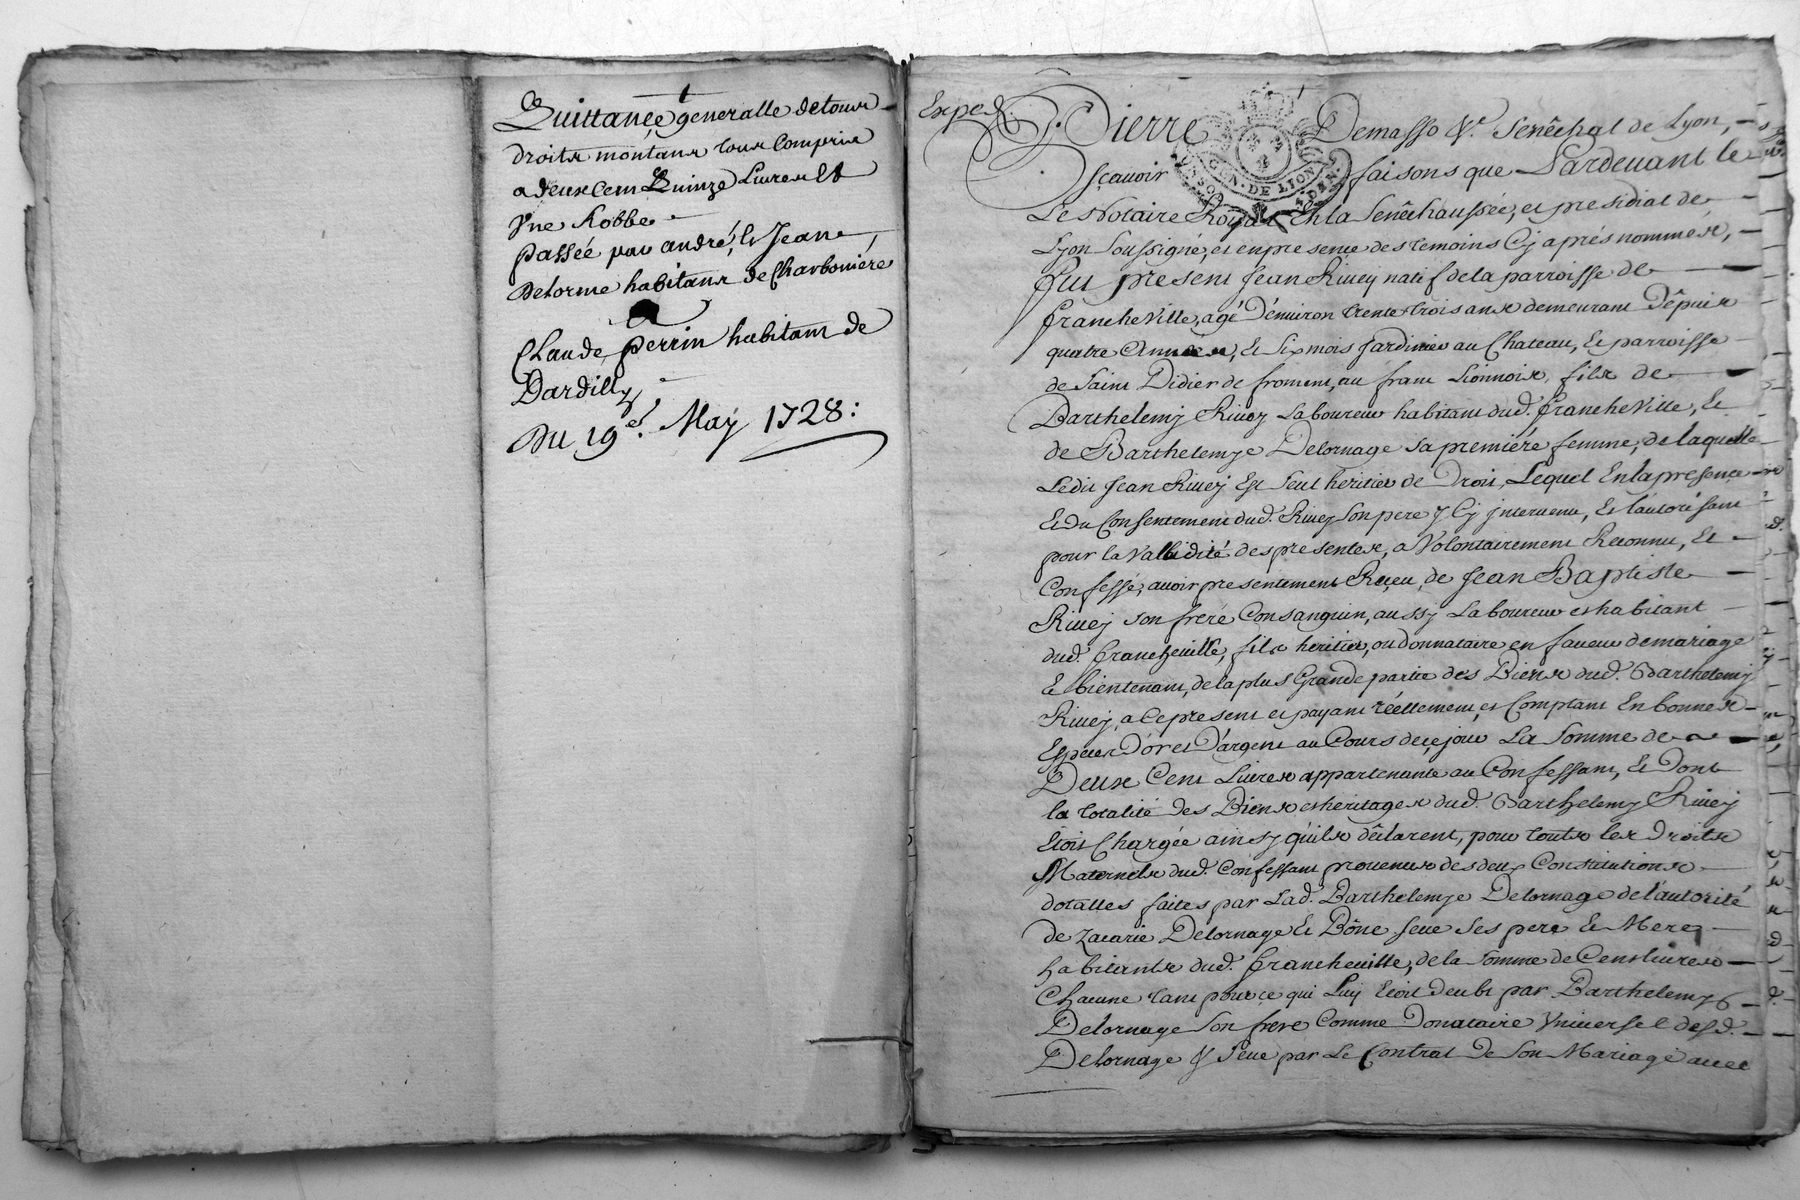 Quittance generalle de tous
droits montans tous Compris
a deux Cent Quinze Livres Et
Une Robbe
passée par andré, & Jean
Delorme habitans de Charboniere
a
Claude perrin habitant de
Dardilly
Du 19e. May 1728:
Exped.
Pierre Demasso &c. Senêchal de Lyon,
sçavoir faisons que Pardevant le
GEN. DE LION
Le Notaire Royal En la Senêchaussée, et presidial de
Lyon Soussigné, et en presence des temoins Cy aprés nommés,
fut present Jean Rivey natif de la parroisse de
francheville, agé d'environ trente trois ans demeurant Dêpuis
quatre Années, Et Six mois Jardinier au Chateau, Et parroisse
de Saint Didier de froment, au franc Lionnois, fils de
Barthelemy Rivey Laboureur habitant dud. francheville, Et
de Barthelemye Delornage sa premiére femme, de laquelle
Ledit Jean Rivey Est Seul heritier de Droit, Lequel En la presence
Et du Consentement dud. Rivey Son pere Cy intervenu, Et l'autorisant
pour la Vallidité des presentes, a Volontairement Reconnu, Et
Confessé, avoir presentement Reçeu, de Jean Baptiste
Rivey son frere Consanguin, aussy Laboureur et habitant
dud. francheville, fils heritier, ou donnataire en faveur de mariage
Et bientenant, de la plus Grande partie des Biens dud. Barthelemy
Rivey, a Ce present et payant réellement, et Comptant En bonnes
Especes D'or et D'argent au Cours de ce jour La Somme de
Deux Cent Livres appartenante au Confessant, Et Dont
la totalité des Biens et heritages dud. Barthelemy Rivey
Etoit Chargée ainsy qu'ils dêclarent, pour touts les Droits
Maternels dud. Confessant provenus des deux Constitutions
dotalles faites par Lad. Barthelemye Delornage de l'autorité
de Zacarie Delornage Et Bône seve Ses pere Et Mere
habitants dud. francheville, de la Somme de Cent livres
Chacune tant pour ce qui Luy Etoit deubt par Barthelemy
Delornage Son frere Comme Donataire Vniversel desd.
Delornage & Seve par Le Contrat de Son Mariage avec